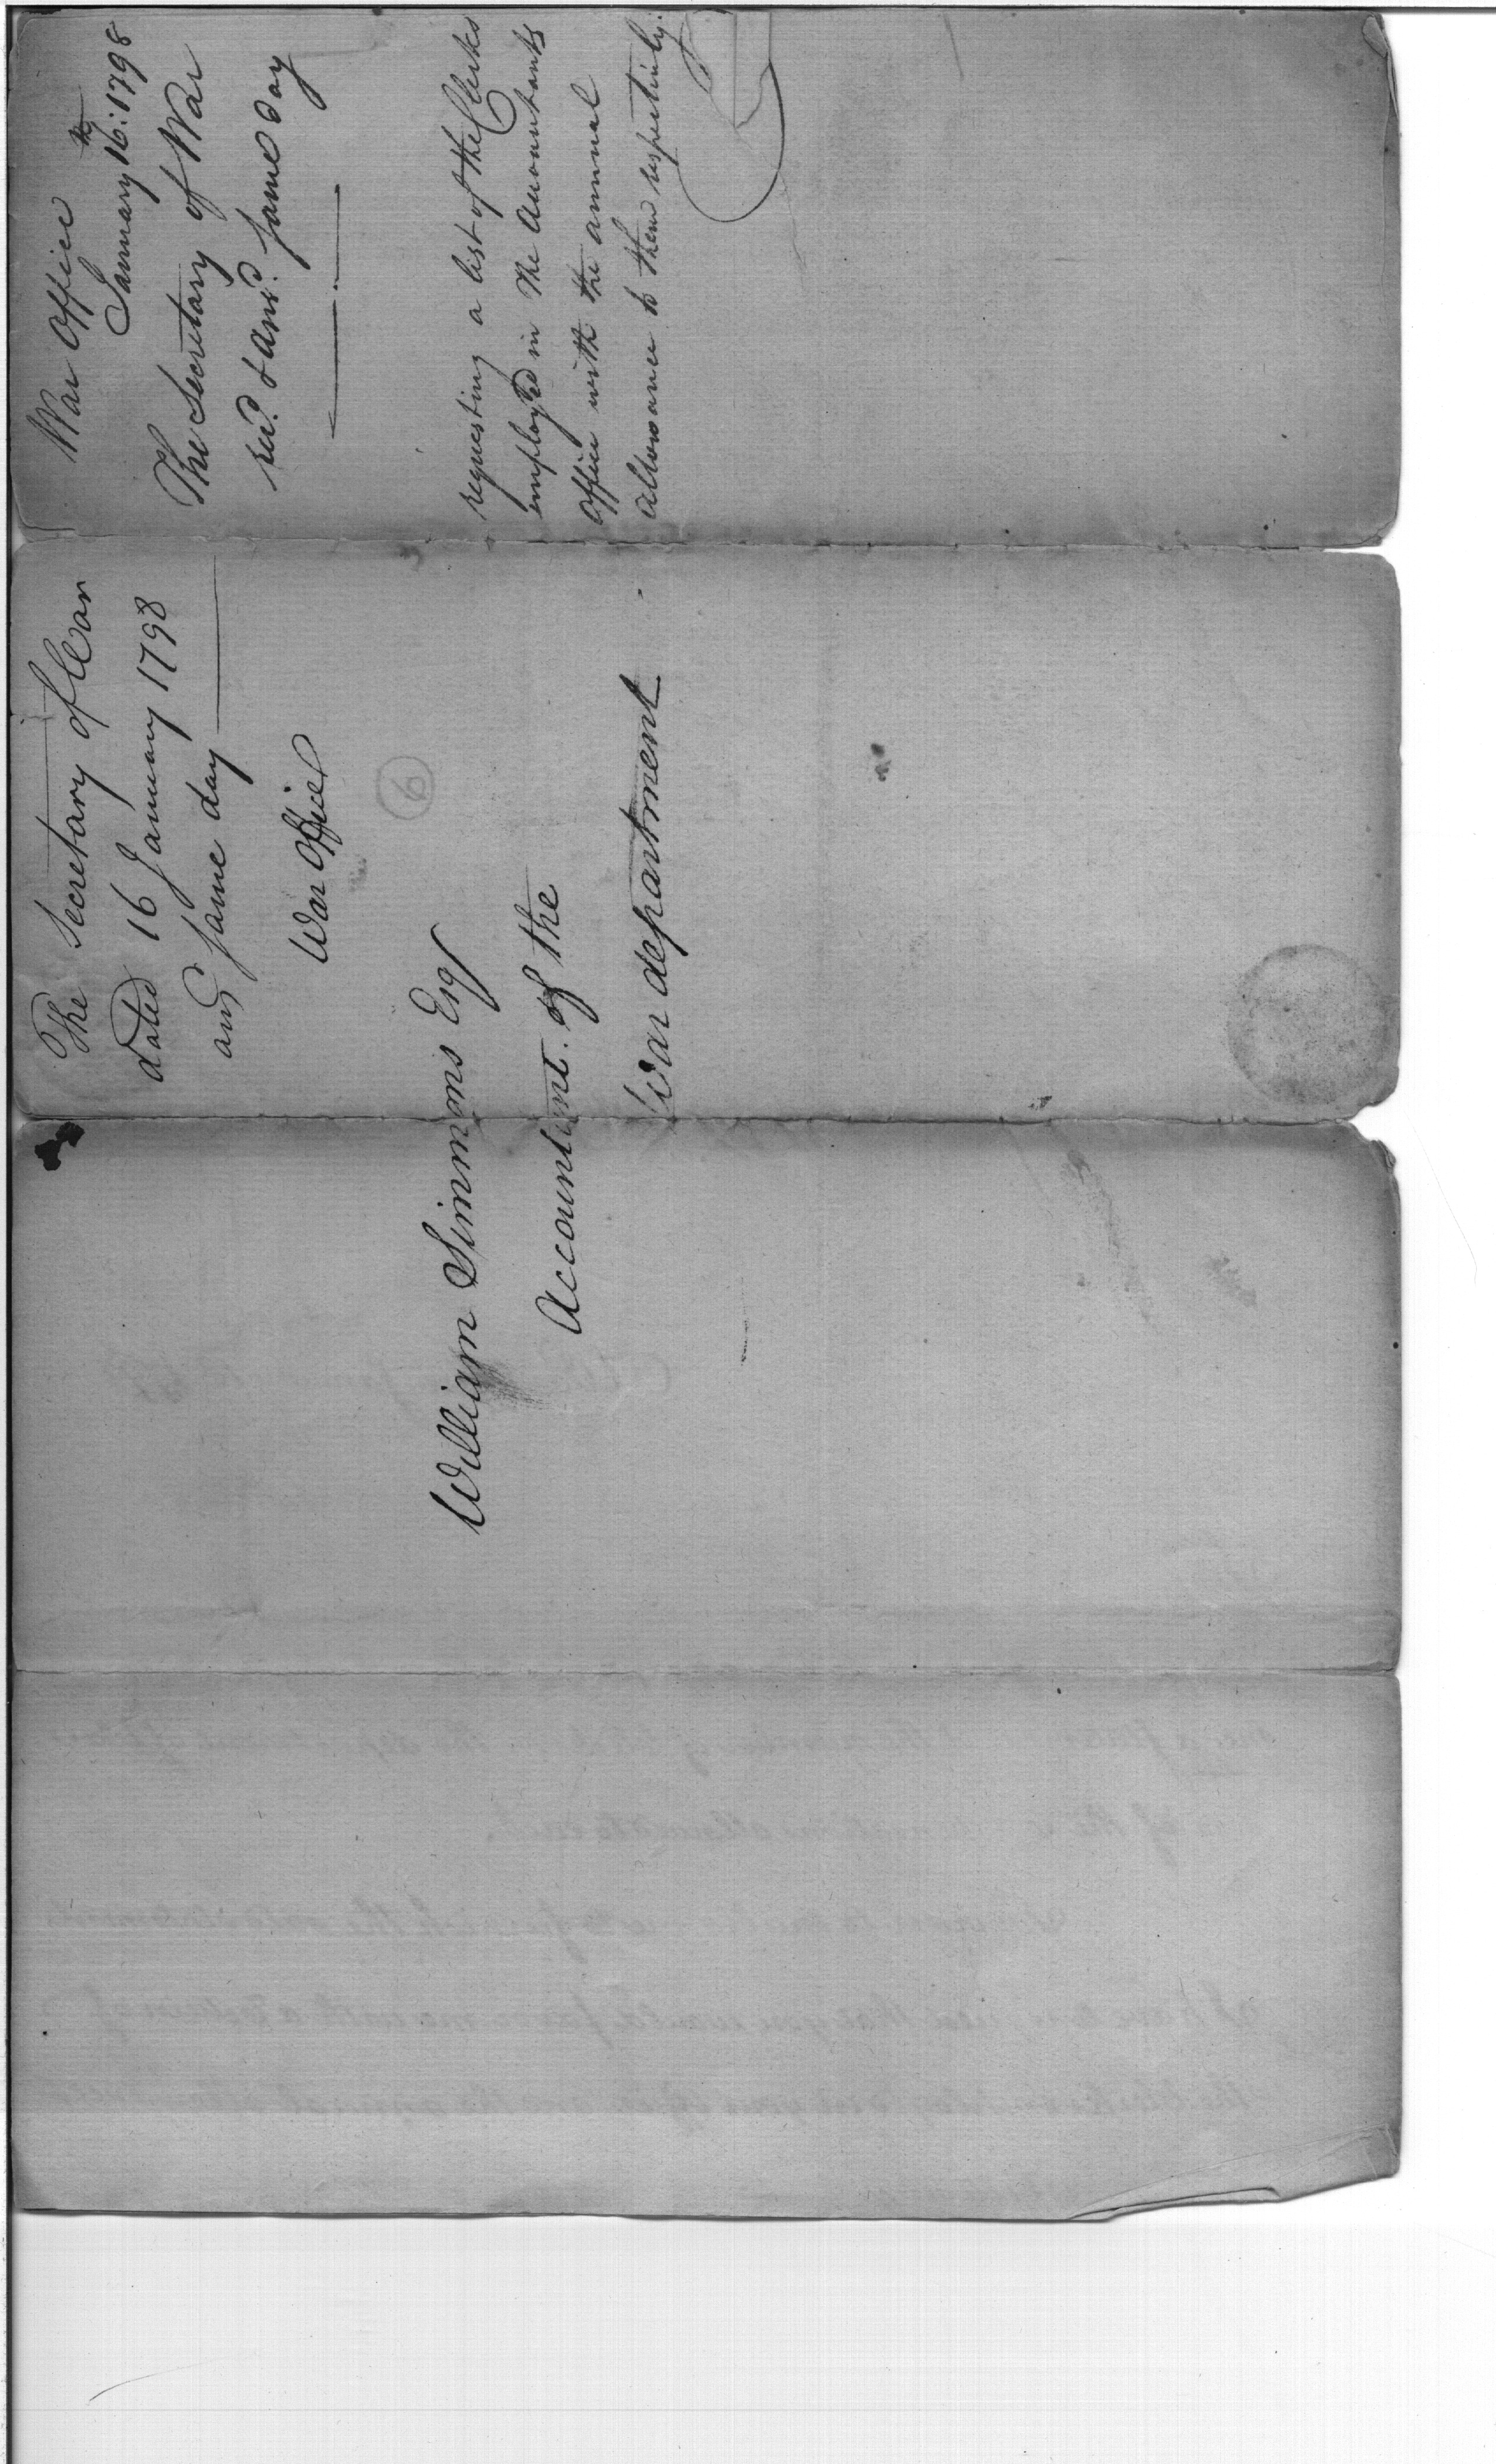 War Office
January 16th: 1798
The Secretary of War
recd. & ansd. same day
requesting a list of the Clerks
employed in the Accountants
Office with the annual
allowance to them respectively.
The Secretary of War
dated 16 January 1798
ansd same day
War Office
William Simmons Esq
Accountant of the
War department